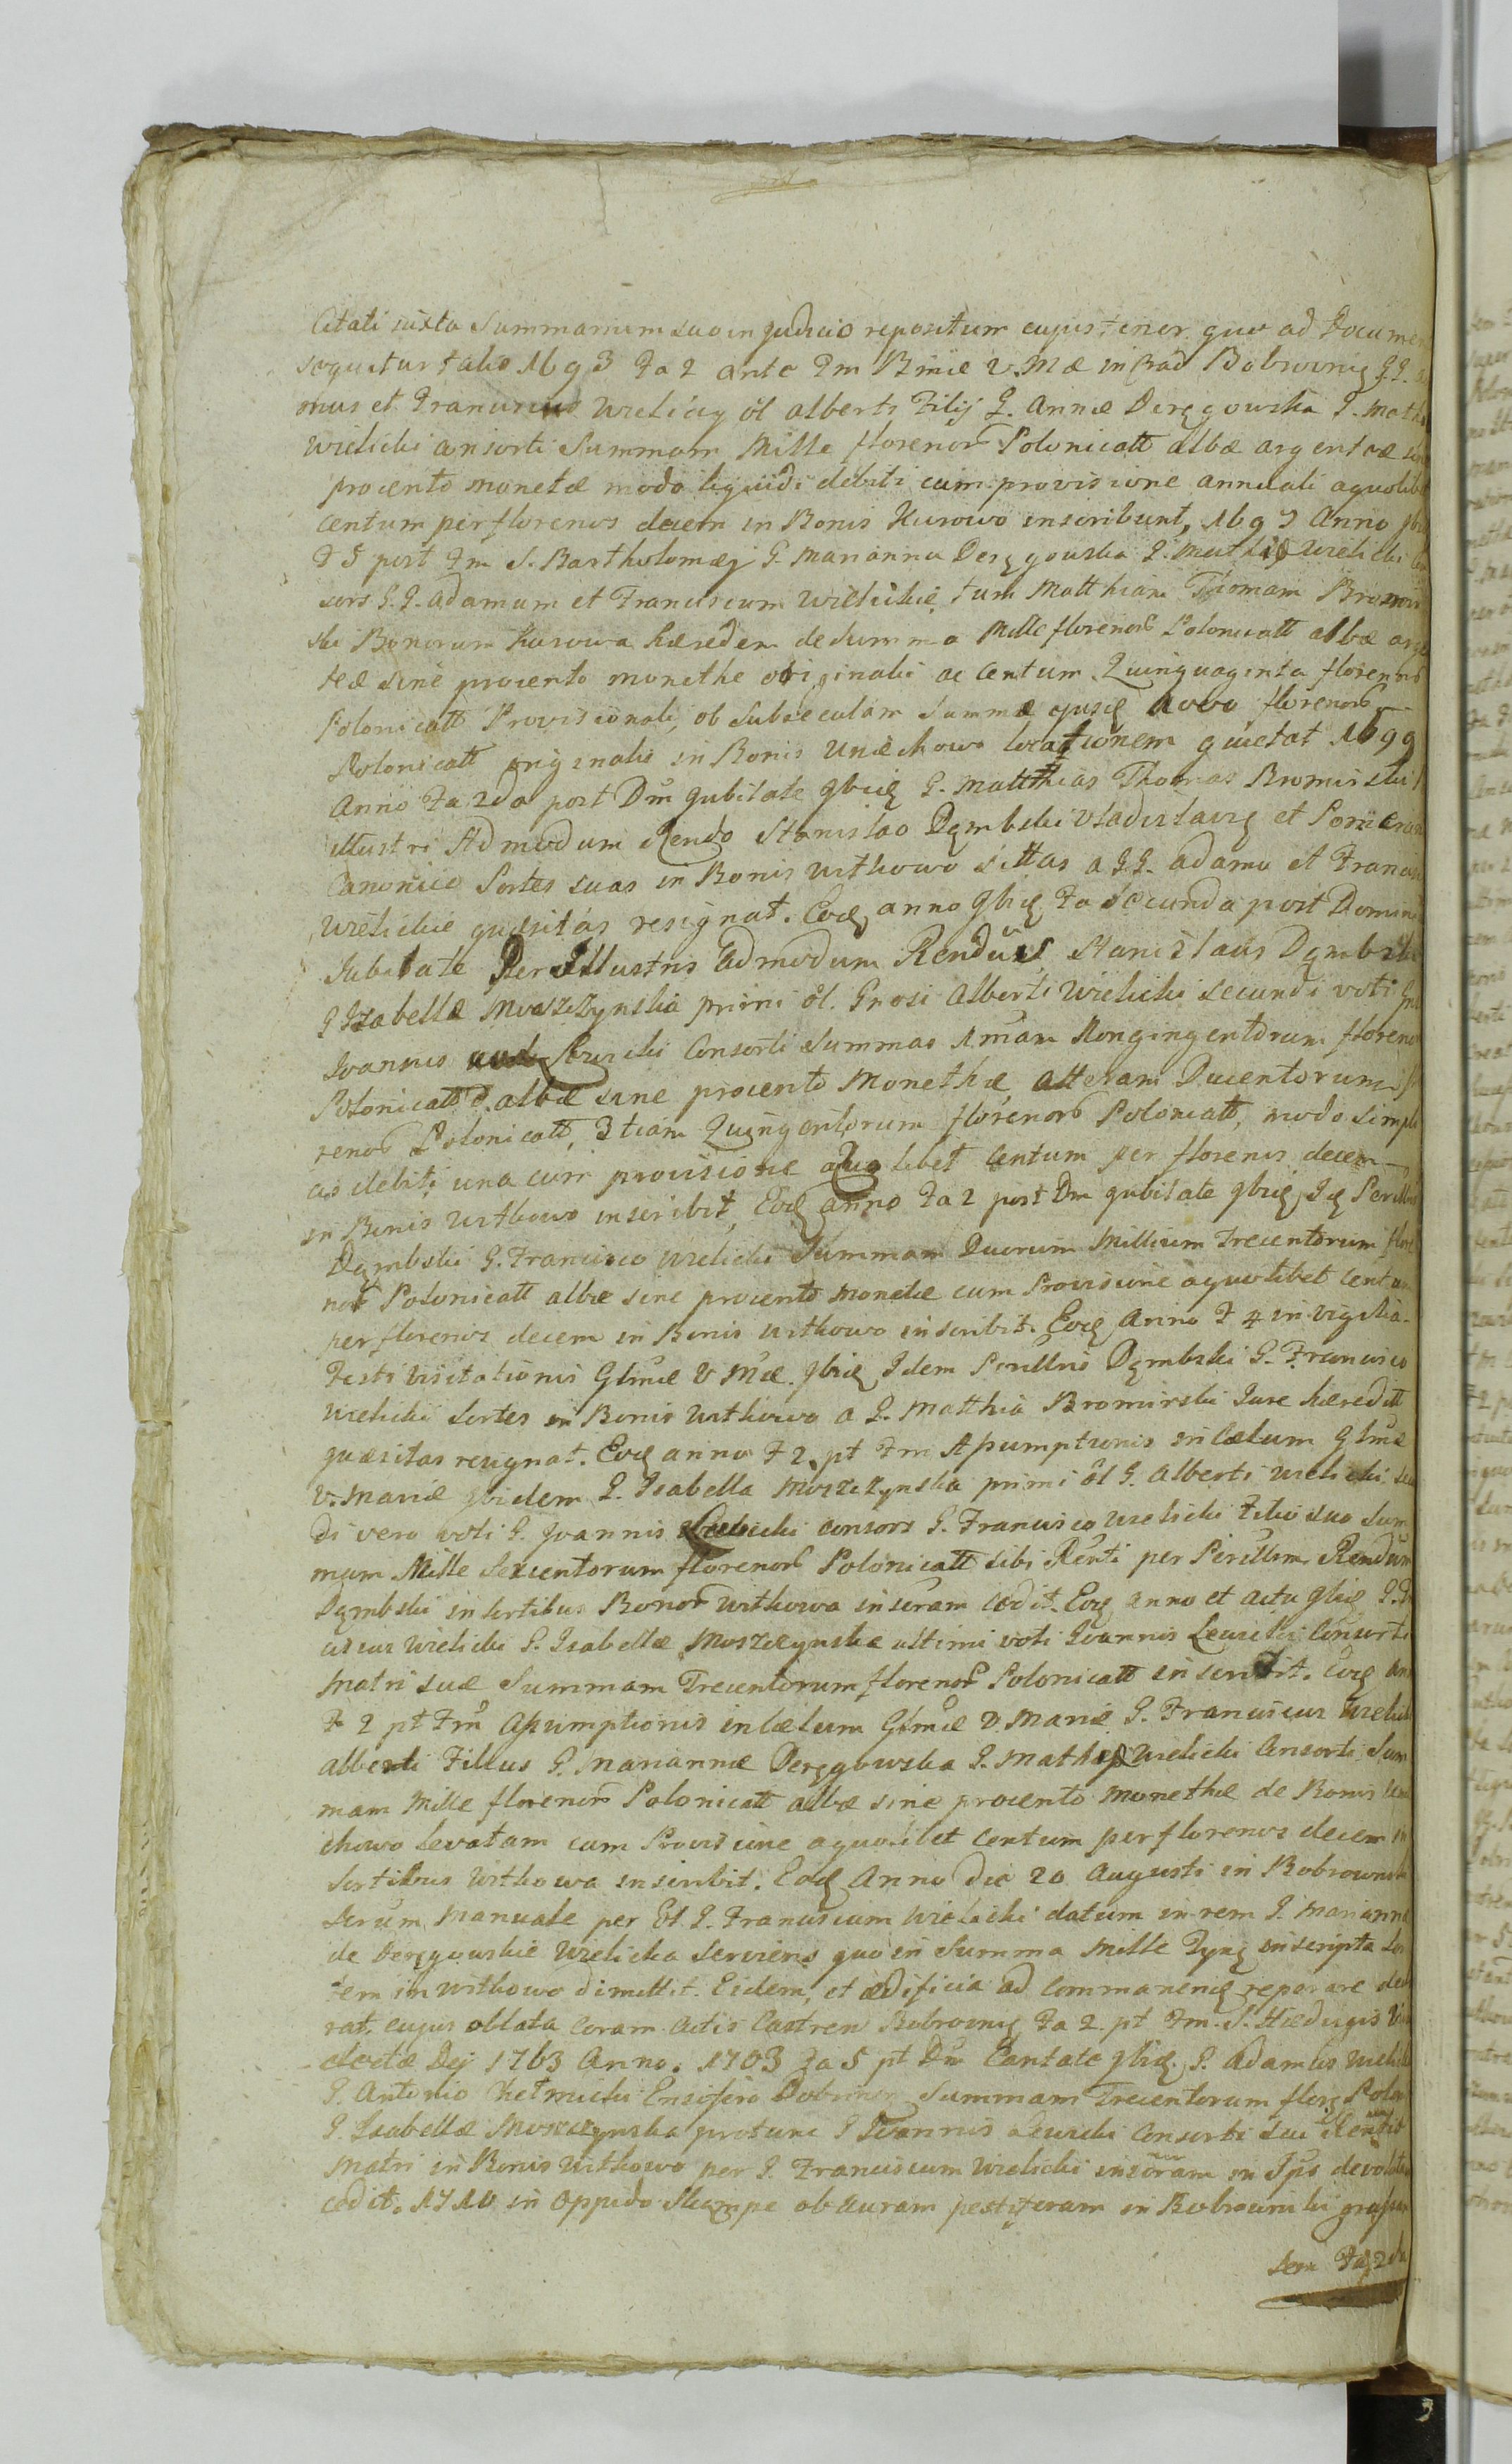 Citati iuxta Summarium suo in Judicio repositum cujus tenor quo ad Documen
sequitur talis 1693 Fa 2 ante Fm Bmæ V. Mæ in Crad Bobrovnig G.G.
mus et Franciscus Wieliccy ol Alberti Filij G. Annæ Deręgowska G. Math
Wielicki consorti Summam Mille florenor Polonicatt albæ argenteæ sine
procento monetæ modo liquidi debiti cum provisione annuali a quolibet
centum per florenos decem in Bonis Kurowo inscribunt, 1697 Anno
F 5 post Fm S. Bartholomæj G. Marianna Deręgowska G. Mathiæ Wielicki
sors G.G. Adamum et Franciscum Wielickie tum Matthiam Thomam Bromir
ski Bonorum Kurowa hæredem de Summa Mille florenor Polonicatt albæ arge
teæ sine procento monethe originali ac Centum Quinquaginta florenor
Polonicatt Provisionali, ob subsecutam Summæ ejusq 1000 florenor
Polonicatt originalis in Bonis Uniechowo locationem quietat 1699
Anno Fa 2da post Dm Jubilate ibiq G. Matthias Thomas Bromirski
Illustri Admodum Rendo Stanislao Dęmbski Vladislavię et Pomeran
Canonico Sortes suas in Bonis Witkowo sittas a G.G. Adamo et Francis
Wielickie quæsitas resignat. Eoq anno ibiq Fa Secunda post Domin
Jubilate Per Illustris Admodum Rendus Stanislaus Dęmbski
G Izabellæ Moszczynska primi ol. Gnosi Alberti Wielicki secundi voti
Joannis Lewicki Consorti Summas 1mam Nongingentorum floreno
Polonicatt albæ sine procento Monethæ, alteram Ducentorum
renor Polonicatt, 3tiam Quingentorum florenor Polonicatt, modo simpli
cis debiti una cum provisione a quolibet centum per florenos decem
in Bonis Witkowo inscribit, Eoq anno Fa 2 post Dm Jubilate ibiq Iq Perillus
Dęmbski G. Francisco Wielicki Summam Duorum Millium Trecentorum flore
nor Polonicatt albæ sine procento Monetæ cum Provisione a quolibet Centum
per florenos decem in Bonis Witkowo inscribit. Eoq Anno F 4 in vigilia
Festi Visitationis Glmæ V Mæ ibiq Idem Perillus Dęmbski G. Francisco
Wielicki Sortes in Bonis Witkowo a G. Matthia Bromirski Jure hæreditt
quæsitas resignat. Eoq anno F 2 pt Fm Assumptionis in Cælum Glmæ
V. Mariæ ibidem G. Isabella Moszczynska primi ol G. Alberti Wielicki
di vero voti G. Joannis Lewicki consors G. Francisco Wielicki Filio suo Sum
mam Mille Sexcentorum florenor Polonicatt sibi Rnti per Perillm Rendum
Dęmbski in sortibus Bonor Witkowa inscram cedit. Eoq anno et actu ibiq G. Fr
ciscus Wielicki G. Isabellæ Moszczynska ultimi voti Joannis Lewicki Consorti
Matri suæ Summam Trecentorum florenor Polonicatt inscribit. Eoq an
F 2 pt Fm Assumptionis in Cælum Glmæ V. Mariæ G. Franciscus Wielicki
Alberti Filius G. Mariannæ Deręgowska G. Mathiæ Wielicki Consorti Sum
mam Mille florenor Polonicatt albæ sine procento Monethæ de Bonis Unie
chowo levatam cum Provisione a quolibet Centum per florenos decem in
Sortibus Witkowa inscribit. Eoq Anno die 20 Augusti in Bobrownik
Scrum Manuale per Gl. G. Franciscum Wielicki datum in rem G. Mariannæ
de Deręgowskie Wielicka serviens quo in Summa Mille Tynę inscripta Sor
tem in Witkowo dimittit. Eidem, et ædificia ad commanenq reparare decla
rat, cujus oblata coram Actis Castren Bobrovnig Fa 2 pt Fm S. Hedvigis
electæ Dej 1703 Anno. 1703 Fa 5 pt Dm Cantate ibiq. G. Adamus Wielicki
G. Antonio Chełmicki Ensifero Dobrinen Summam Trecentorum florę Polon
G. Isabellæ Moszczynska protunc G Joannis Lewicki Consorti suæ
Matri in Bonis Witkowo per G. Franciscum Wielicki inscram in Ips devolutam
cedit. 1710 in Oppido Skampe ob auram pestiferam in Bobrowniki grassan
tem Fa 2da